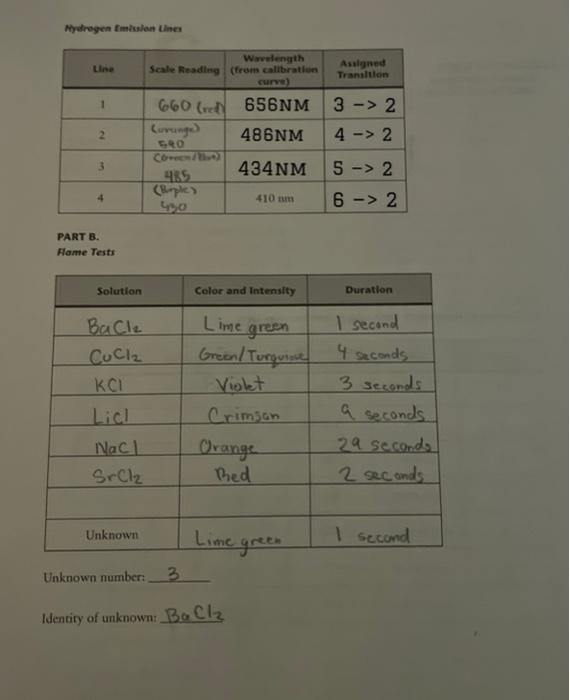 Hydrogen Emission Lines
Line Scale Reading Wavelength (from calibration curve) Assigned Transition
1 660 (red) 656NM 3 -> 2
2 (orange) 590 486NM 4 -> 2
3 (Green/Blue) 485 434NM 5 -> 2
4 (Purple) 430 410 nm 6 -> 2
PART B.
Flame Tests
Solution Color and Intensity Duration
BaCl2 Lime green 1 second
CuCl2 Green/Turquoise 4 seconds
KCl Violet 3 seconds
LiCl Crimson 9 seconds
NaCl Orange 29 seconds
SrCl2 Red 2 seconds
Unknown Lime green 1 second
Unknown number: 3
Identity of unknown: BaCl2